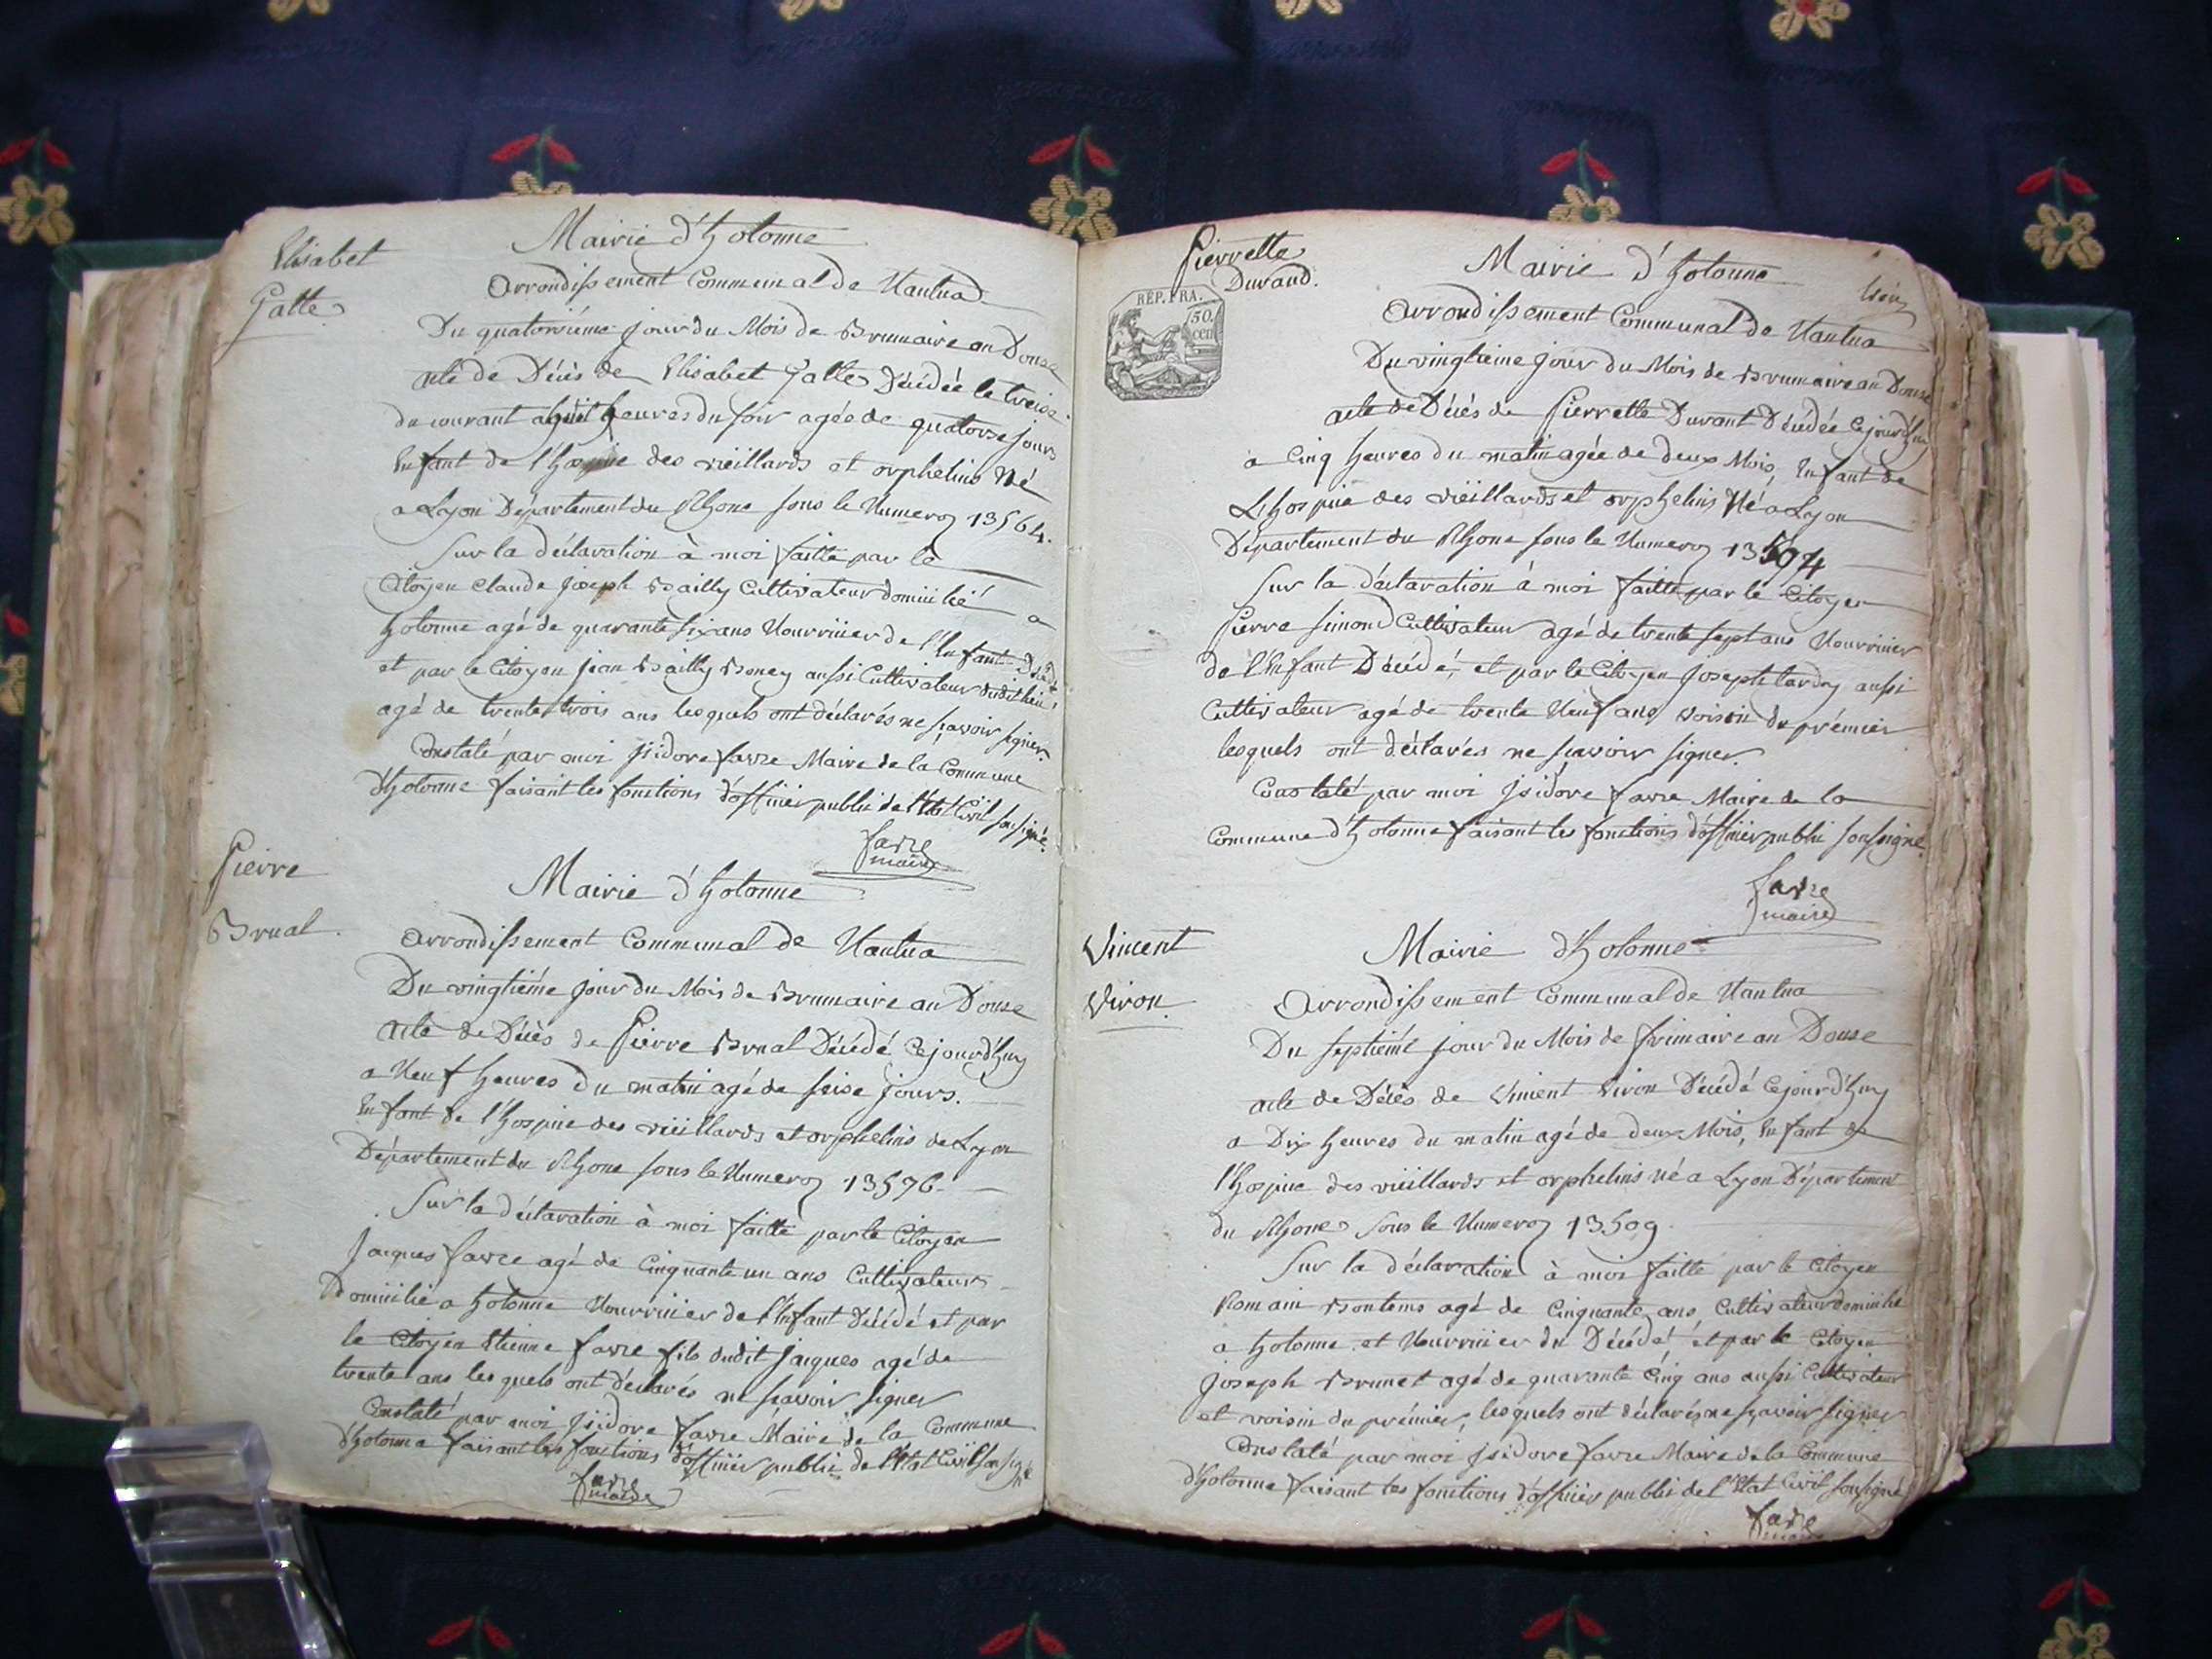 Elisabet
Galle
Mairie d'hotonne
Arrondissement Communal de Nantua
Du quatorsiéme jour du Mois de Brumaire an Douse
acte de Décès de Elisabet Galle Décédée le treise
du courant a huit heures du soir agée de quatorse jours
Enfant de l'hospice des vieillards et orphelins Né
a Lyon Département du Rhone sous le Numero 13564.
Sur la déclaration à moi faitte par le
Citoyen Claude Joseph Bailly Cultivateur domicilié a
hotonne agé de quarante six ans Nourricier de l'Enfant Décédé
et par le Citoyen jean Bailly Boney aussi Cultivateur dudit lieu,
agé de trente trois ans lesquels ont déclarés ne sçavoir signer.
Constaté par moi Isidore favre Maire de la Commune
d'hotonne faisant les fonctions d'officier public de l'Etat Civil soussigné.
favre
maire
Pierre
Brual.
Mairie d'hotonne
Arrondissement Communal de Nantua
Du vingtiéme jour du Mois de Brumaire an Douse
acte de Décès de Pierre Brual Décédé Cejourd'huy
a Neuf heures du matin agé de seise jours.
Enfant de l'hospice des vieillards et orphelins de Lyon
Département du Rhone sous le Numero 13576
Sur la déclaration à moi faitte par le Citoyen
Jacques favre agé de Cinquante un ans Cultivateur
Domicilié a hotonne Nourricier de l'Enfant Décédé et par
le Citoyen Etienne favre fils dudit jacques agé de
trente ans lesquels ont déclarés ne sçavoir signer
Constaté par moi Isidore favre Maire de la Commune
d'hotonne faisant les fonctions d'officier public de l'Etat Civil soussigné
favre
maire
Pierrette
Durand.
REP. FRA.
50
cen
Mairie d'hotonne
Arrondissement Communal de Nantua
Du vingtieme jour du Mois de Brumaire an Douse
acte de Décès de Pierrette Durant Décédée Cejourd'huy
a Cinq heures du matin agée de deux Mois, Enfant de
L'hospice des vieillards et orphelins Né a Lyon
Département du Rhone sous le Numero 13507
Sur la déclaration à moi faitte par le Citoyen
Pierre simond Cultivateur agé de trente sept ans Nourricier
de l'Enfant Décédé, et par le Citoyen Joseph tardy aussi
Cultivateur agé de trente Neuf ans voisin du prémier
lesquels ont déclarés ne sçavoir signer.
Constaté par moi Isidore favre Maire de la
Commune d'hotonne faisant les fonctions d'officier public soussigné.
favre
maire
Vincent
Viron.
Mairie d'hotonne
Arrondissement Communal de Nantua
Du septiéme jour du Mois de frimaire an Douse
acte de Décès de Vincent Viron Décédé Cejourd'huy
a Dix heures du matin agé de deux Mois, Enfant de
l'hospice des vieillards et orphelins né a Lyon Département
du Rhone sous le Numero 13509.
Sur la déclaration à moi faitte par le Citoyen
Romain Bontems agé de Cinquante ans Cultivateur domicilié
a hotonne et Nourricier du Décédé, et par le Citoyen
Joseph Brunet agé de quarante Cinq ans aussi Cultivateur
et voisin du prémier, lesquels ont déclarés ne sçavoir signer
Constaté par moi Isidore favre Maire de la Commune
d'hotonne faisant les fonctions d'officier public de l'Etat Civil soussigné
favre
maire